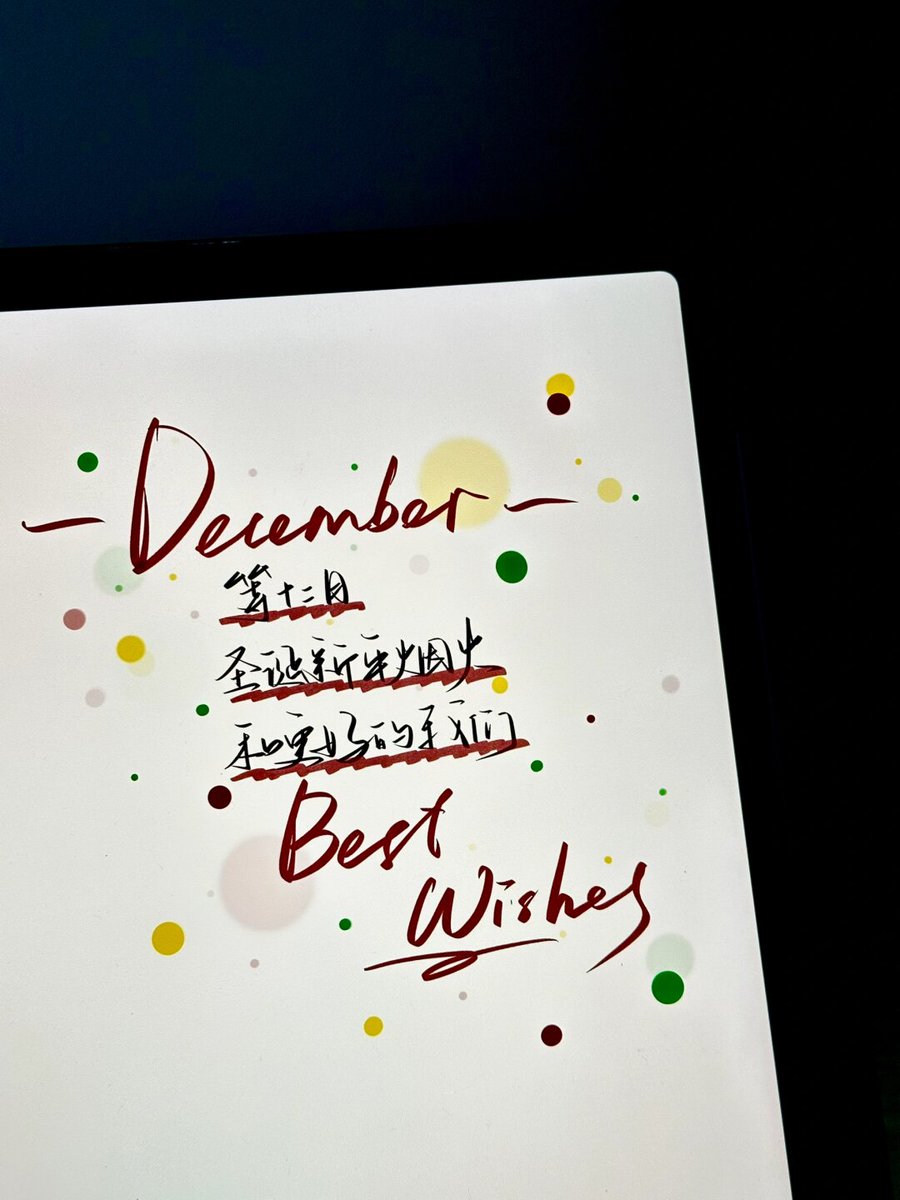 - December -
等十二月
圣诞新年烟火
和更好的我们
Best
Wishes